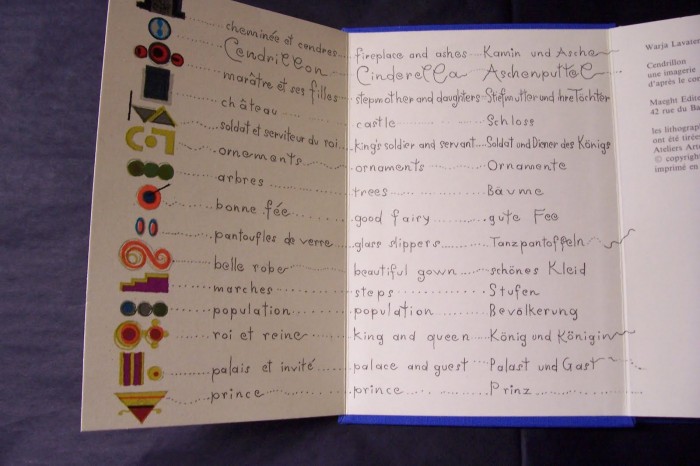 cheminée et cendres fireplace and ashes Kamin und Asche
Cendrillon Cinderella Aschenputtel
marâtre et ses filles stepmother and daughters Stiefmutter und ihre Töchter
château castle Schloss
soldat et serviteur du roi king's soldier and servant Soldat und Diener des Königs
ornements ornaments Ornamente
arbres trees Bäume
bonne fée good fairy gute Fee
pantoufles de verre glass slippers Tanzpantoffeln
belle robe beautiful gown schönes Kleid
marches steps Stufen
population population Bevölkerung
roi et reine king and queen König und Königin
palais et invité palace and guest Palast und Gast
prince prince Prinz
Warja Lavater
Cendrillon
une imagerie
d'après le co
Maeght Edite
42 rue du Ba
les lithograp
ont été tirée
Ateliers Art
© copyright
imprimé en